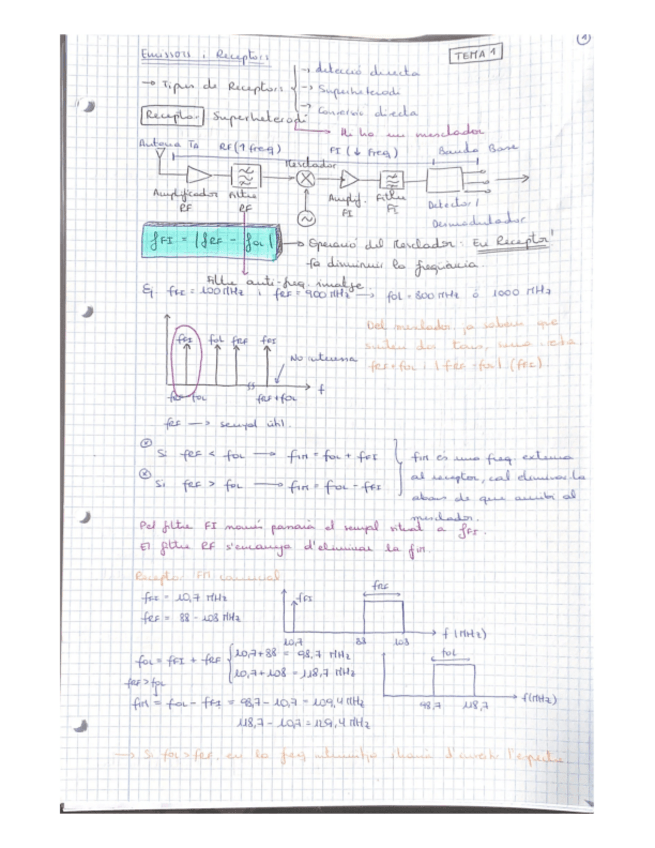 1
Emissors i Receptors
TEMA 1
→ Tipus de Receptors
→ detecció directa
→ Superheterodí
→ Conversió directa
Receptor Superheterodí
→ Hi ha un mesclador
Antena Tx RF (↑ freq) FI (↓ freq) Banda Base
Mesclador
Amplificador RF
Filtre RF
Amplif. FI
Filtre FI
Detector /
Desmodulador
fFI = |fRF - fOL| → Operació del Mesclador: En Receptor!
fa disminuir la freqüència.
Filtre anti-freq. imatge.
Ej. fFI = 100 MHz i fRF = 900 MHz → fOL = 800 MHz ó 1000 MHz
Del mesclador ja sabem que
surten dos tons, una
fRF + fOL i |fRF - fOL| (fFI).
fFI fOL fRF fFI
No interessa
fRF - fOL fRF + fOL f
fRF → senyal útil.
Si fRF < fOL → fIM = fOL + fFI
Si fRF > fOL → fIM = fOL - fFI
fIM és una freq. externa
al receptor, cal eliminar-la
abans de que arribi al
mesclador.
Pel filtre FI només passarà el senyal situat a fFI.
El filtre RF s'encarrega d'eliminar la fIM.
Receptor FM comercial
fFI = 10,7 MHz
fRF = 88 - 108 MHz
fFI fRF
10,7 88 108 f (MHz)
fOL = fFI + fRF
10,7+88 = 98,7 MHz
10,7+108 = 118,7 MHz
fRF > fOL
fOL
98,7 118,7 f(MHz)
fIM = fOL - fFI = 98,7 - 10,7 = 109,4 MHz
118,7 - 10,7 = 129,4 MHz
→ Si fOL > fRF, en la freq